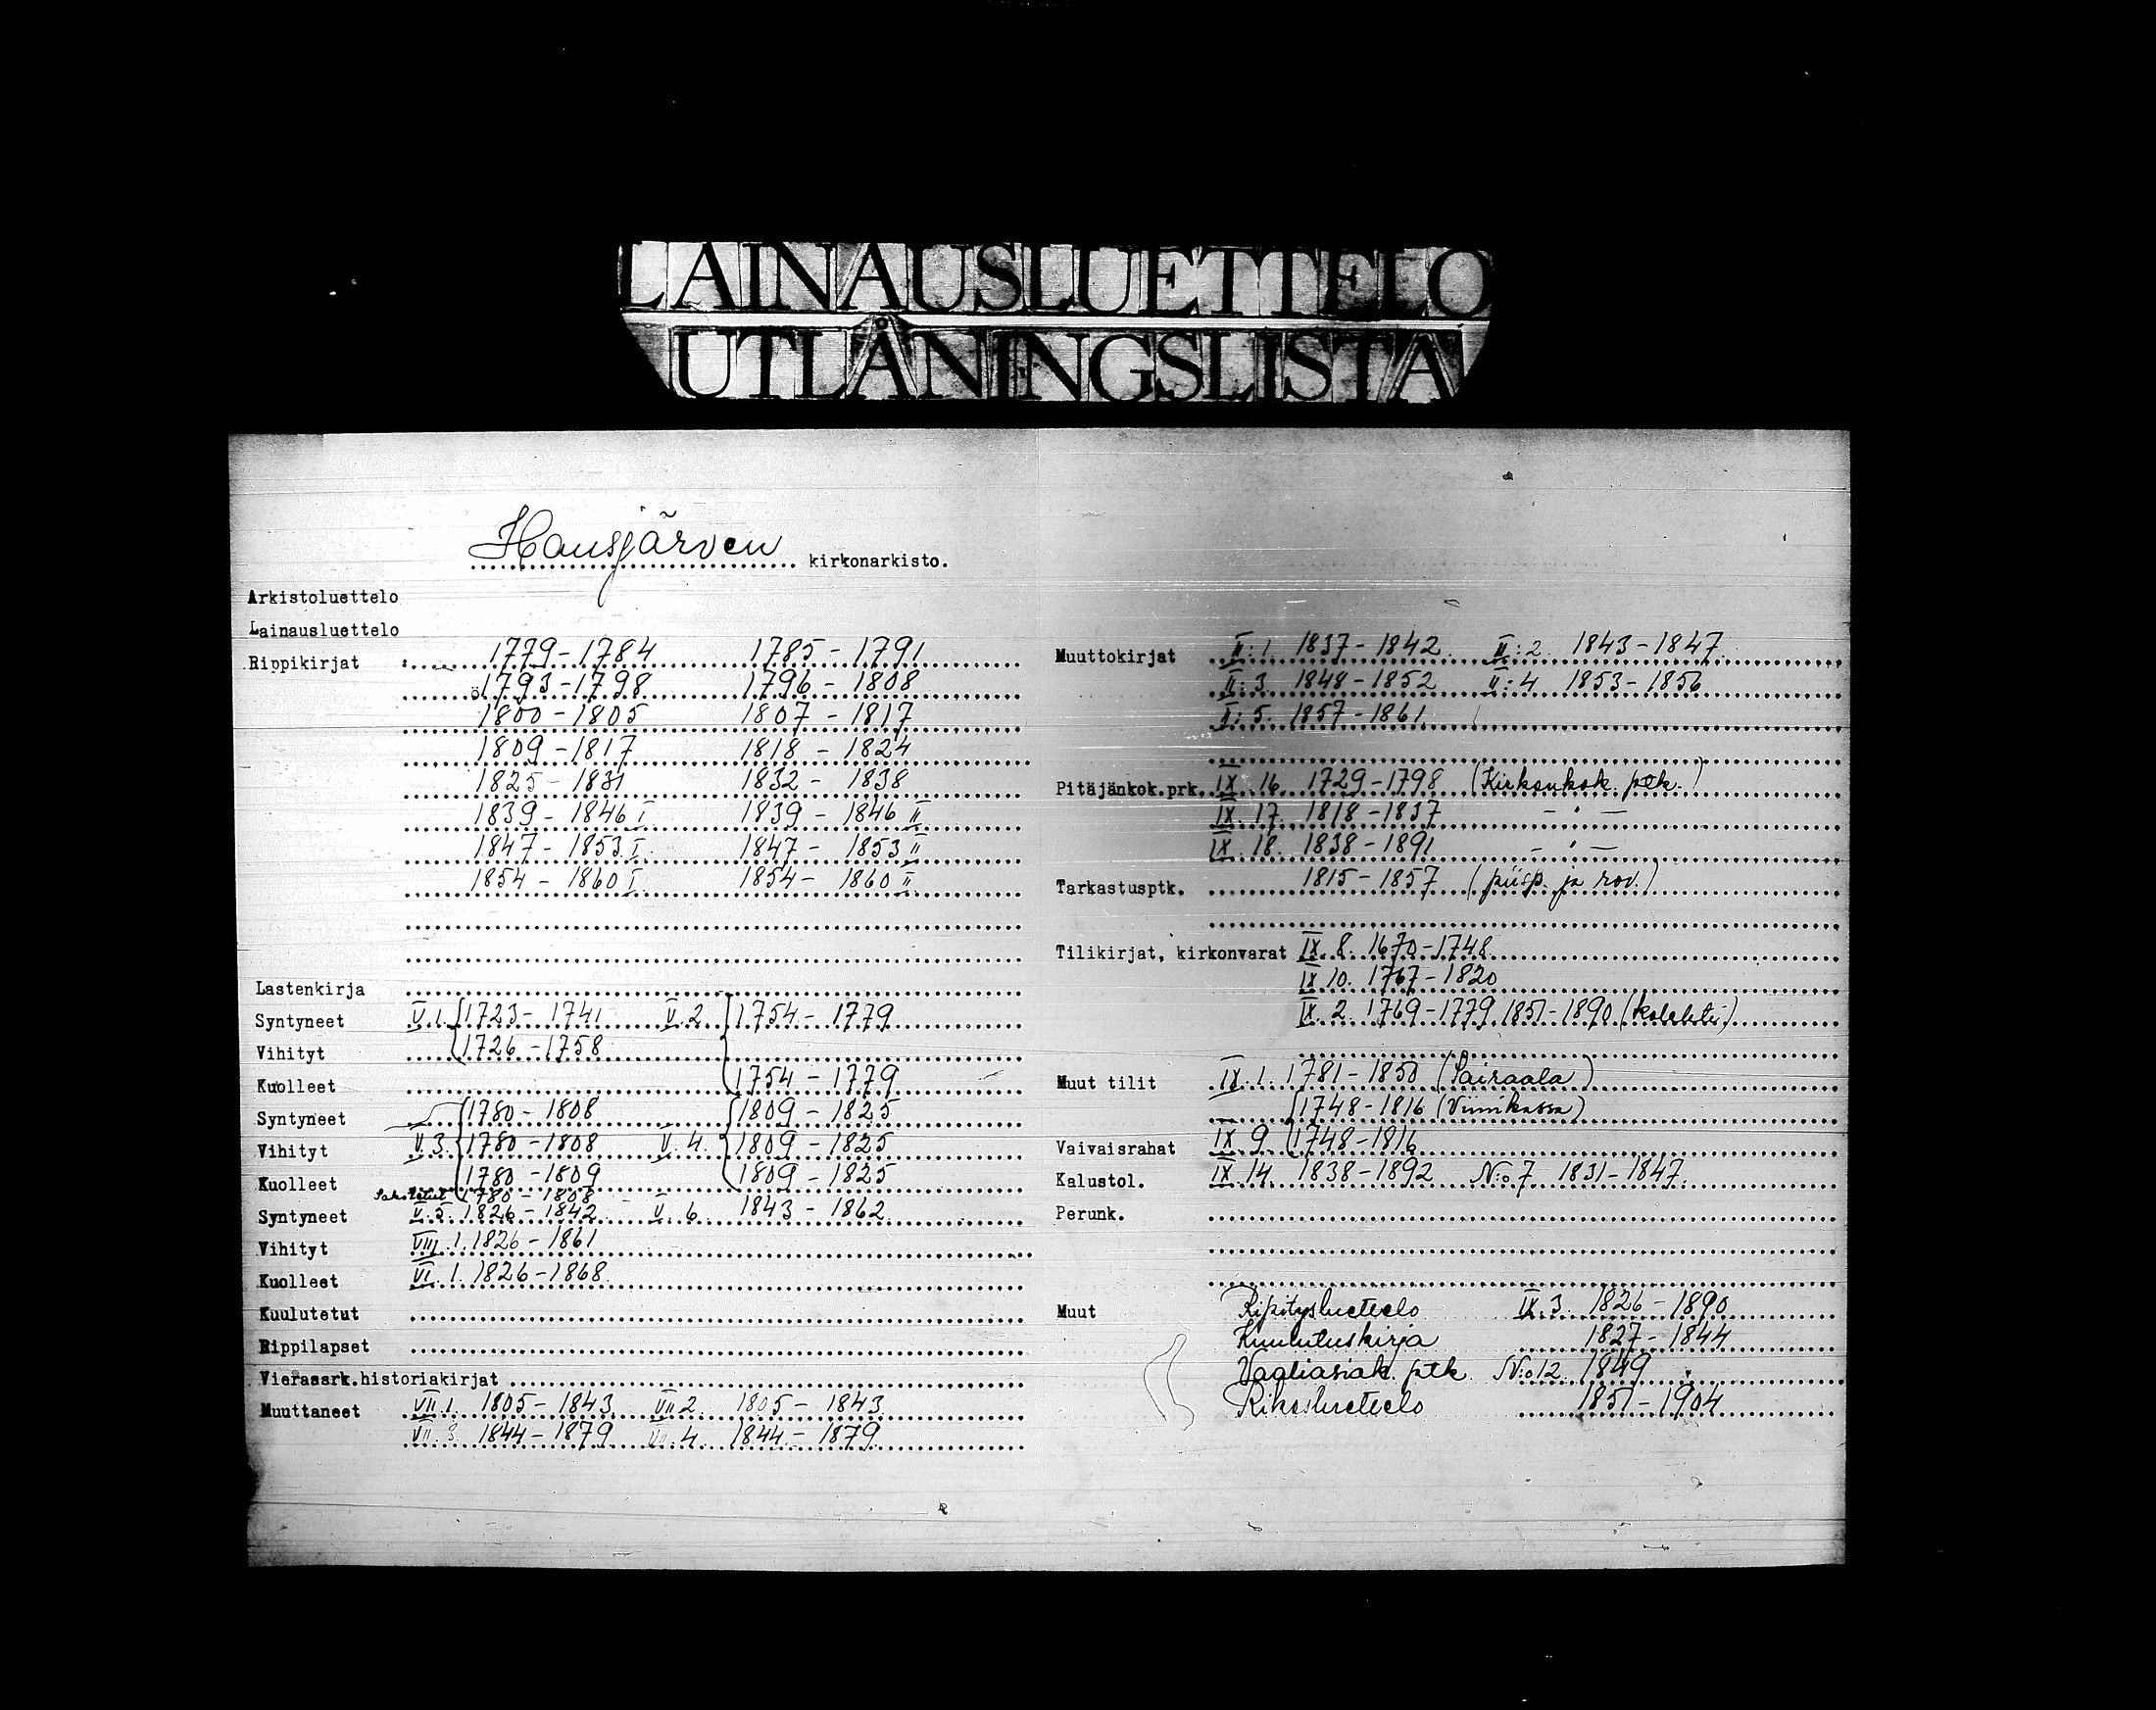 LAINAUSLUETTELO
UTLÅNINGSLISTA
Hausjärven kirkonarkisto.
Arkistoluettelo
Lainausluettelo
Rippikirjat 1779-1784 1785-1791
1793-1798 1796-1808
1800-1805 1807-1817
1809-1817 1818-1824
1825-1831 1832-1838
1839-1846 I 1839-1846 II
1847-1853 I 1847-1853 II
1854-1860 I 1854-1860 II
Lastenkirja
Syntyneet V.1. 1723-1741 V.2. 1754-1779
Vihityt 1726-1758
Kuolleet 1754-1779
Syntyneet 1780-1808 1809-1825
Vihityt V.3. 1780-1808 V.4. 1809-1825
Kuolleet 1780-1809 1809-1825
1780-1808
Syntyneet V.5. 1826-1842 V.6. 1843-1862
Vihityt VIII.1. 1826-1861
Kuolleet VI.1. 1826-1868
Kuulutetut
Rippilapset
Vierassrk.historiakirjat
Muuttaneet VII.1. 1805-1843 VII.2. 1805-1843
VII.3. 1844-1879 VII.4. 1844-1879
Muuttokirjat II:1. 1837-1842 II:2. 1843-1847
II:3. 1848-1852 II:4 1853-1856
II:5. 1857-1861
Pitäjänkok.prk. IX.16. 1729-1798 (Kirkonkok. ptk.)
IX.17. 1818-1837 - " -
IX.18. 1838-1891 - " -
Tarkastusptk. 1815-1857 (piisp. ja rov.)
Tilikirjat, kirkonvarat IX.8. 1670-1748
IX.10. 1767-1820
IX.2. 1769-1779 1851-1890
Muut tilit IX.1. 1781-1850 (Sairaala)
1748-1816 (Viinikassa)
Vaivaisrahat IX.9. 1748-1816
Kalustol. IX.14. 1838-1892 N:o 7 1831-1847.
Perunk.
Muut Ripitysluettelo IX.3. 1826-1890
Kuulutuskirja 1827-1844
ptk. N:o 12 1849
Rikosluettelo 1851-1904